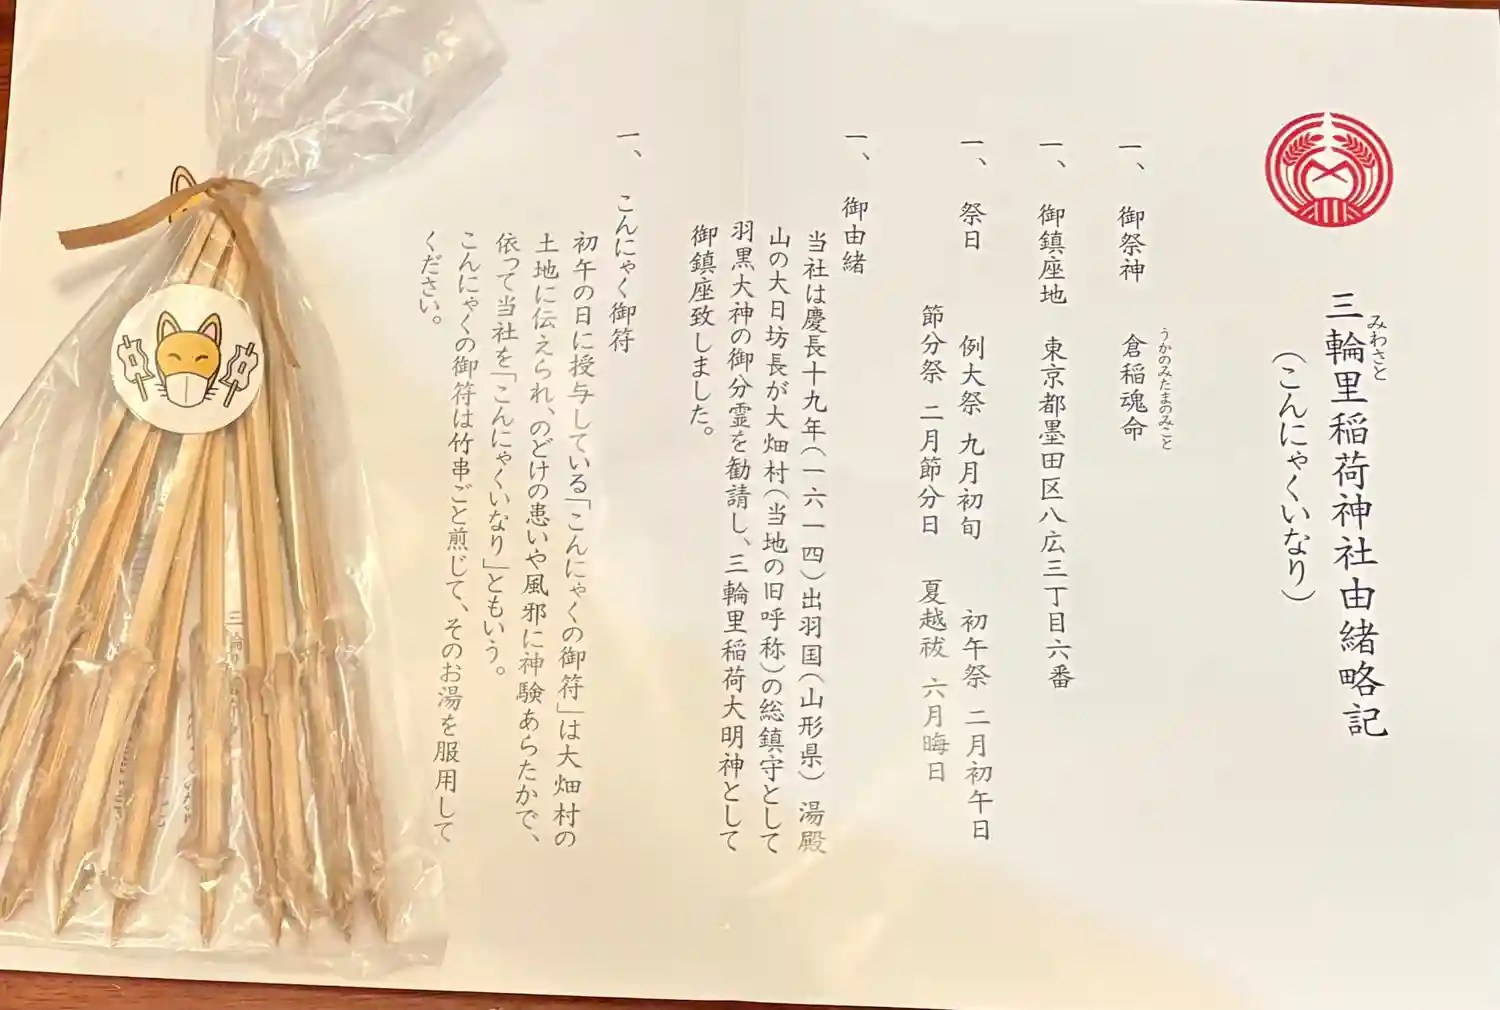 三輪里稲荷神社由緒略記
みわさと
（こんにゃくいなり）
一、御祭神　倉稲魂命
うかのみたまのみこと
一、御鎮座地　東京都墨田区八広三丁目六番
一、祭日　例大祭 九月初旬　初午祭 二月初午日
節分祭 二月節分日　夏越祓 六月晦日
一、御由緒
当社は慶長十九年（一六一四）出羽国（山形県）湯殿
山の大日坊長が大畑村（当地の旧呼称）の総鎮守として
羽黒大神の御分霊を勧請し、三輪里稲荷大明神として
御鎮座致しました。
一、こんにゃく御符
初午の日に授与している「こんにゃくの御符」は大畑村の
土地に伝えられ、のどけの患いや風邪に神験あらたかで、
依って当社を「こんにゃくいなり」ともいう。
こんにゃくの御符は竹串ごと煎じて、そのお湯を服用して
ください。